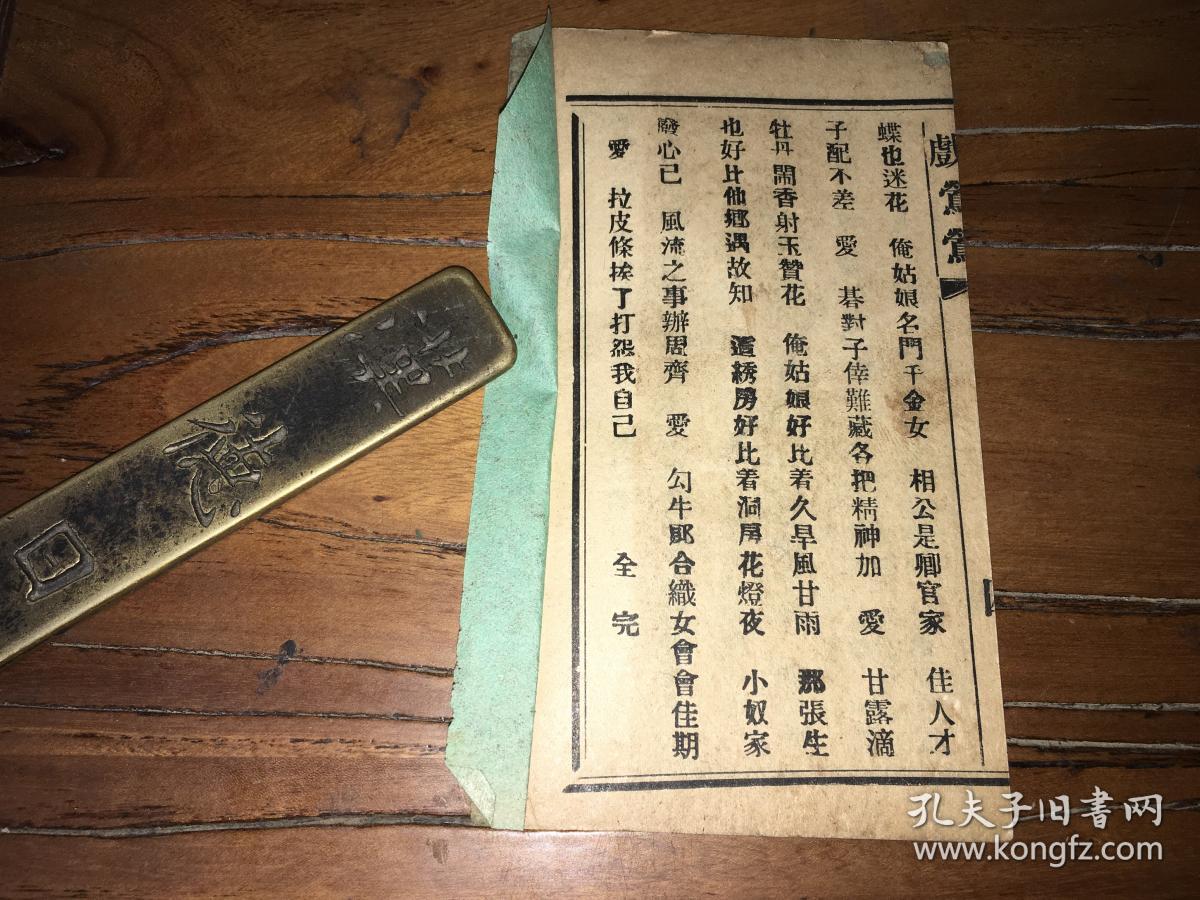 戲鶯鶯
四
蝶也迷花 俺姑娘名門千金女 相公是卿官家 佳人才
子配不差 愛 碁對子倖難藏各把精神加 愛 甘露滴
牡丹開香射玉贊花 俺姑娘好比着久旱風甘雨 那張生
也好比他鄉遇故知 這綉房好比着洞房花燈夜 小奴家
發心已 風流之事辦周齊 愛 勾牛郎合織女會會佳期
愛 拉皮條挨了打怨我自己 全完
德
孔夫子旧書网
www.kongfz.com